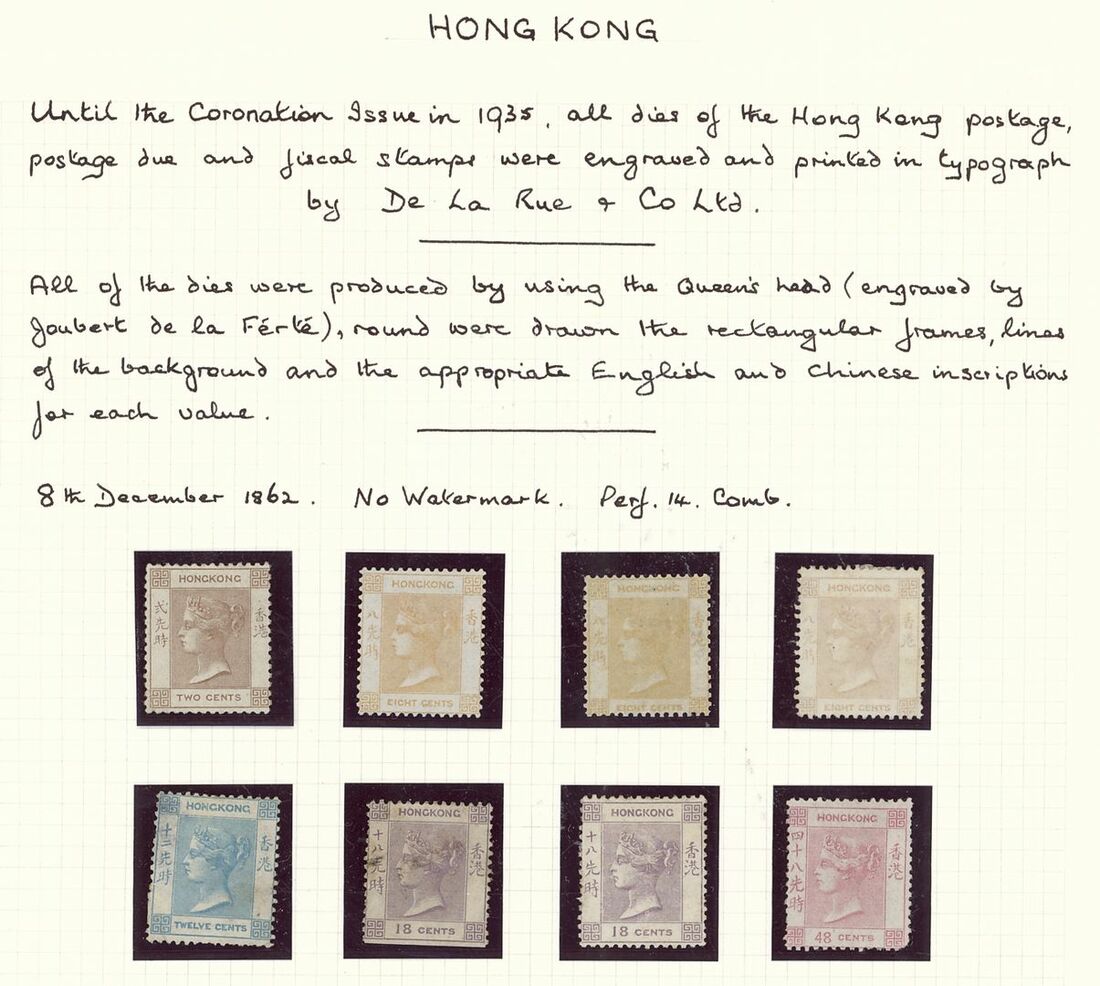 HONG KONG
Until the Coronation Issue in 1935, all dies of the Hong Kong postage,
postage due and fiscal stamps were engraved and printed in typograph
by De La Rue & Co Ltd.
All of the dies were produced by using the Queen's head (engraved by
Joubert de la Férté), round were drawn the rectangular frames, lines
of the background and the appropriate English and Chinese inscriptions
for each value.
8th December 1862. No Watermark. Perf. 14. Comb.
HONGKONG
弍先時
香港
TWO CENTS
HONGKONG
八先時
香港
EIGHT CENTS
HONGKONG
八先時
香港
EIGHT CENTS
HONGKONG
八先時
香港
EIGHT CENTS
HONGKONG
十二先時
香港
TWELVE CENTS
HONGKONG
十八先時
香港
18 CENTS
HONGKONG
十八先時
香港
18 CENTS
HONGKONG
四十八先時
香港
48 CENTS